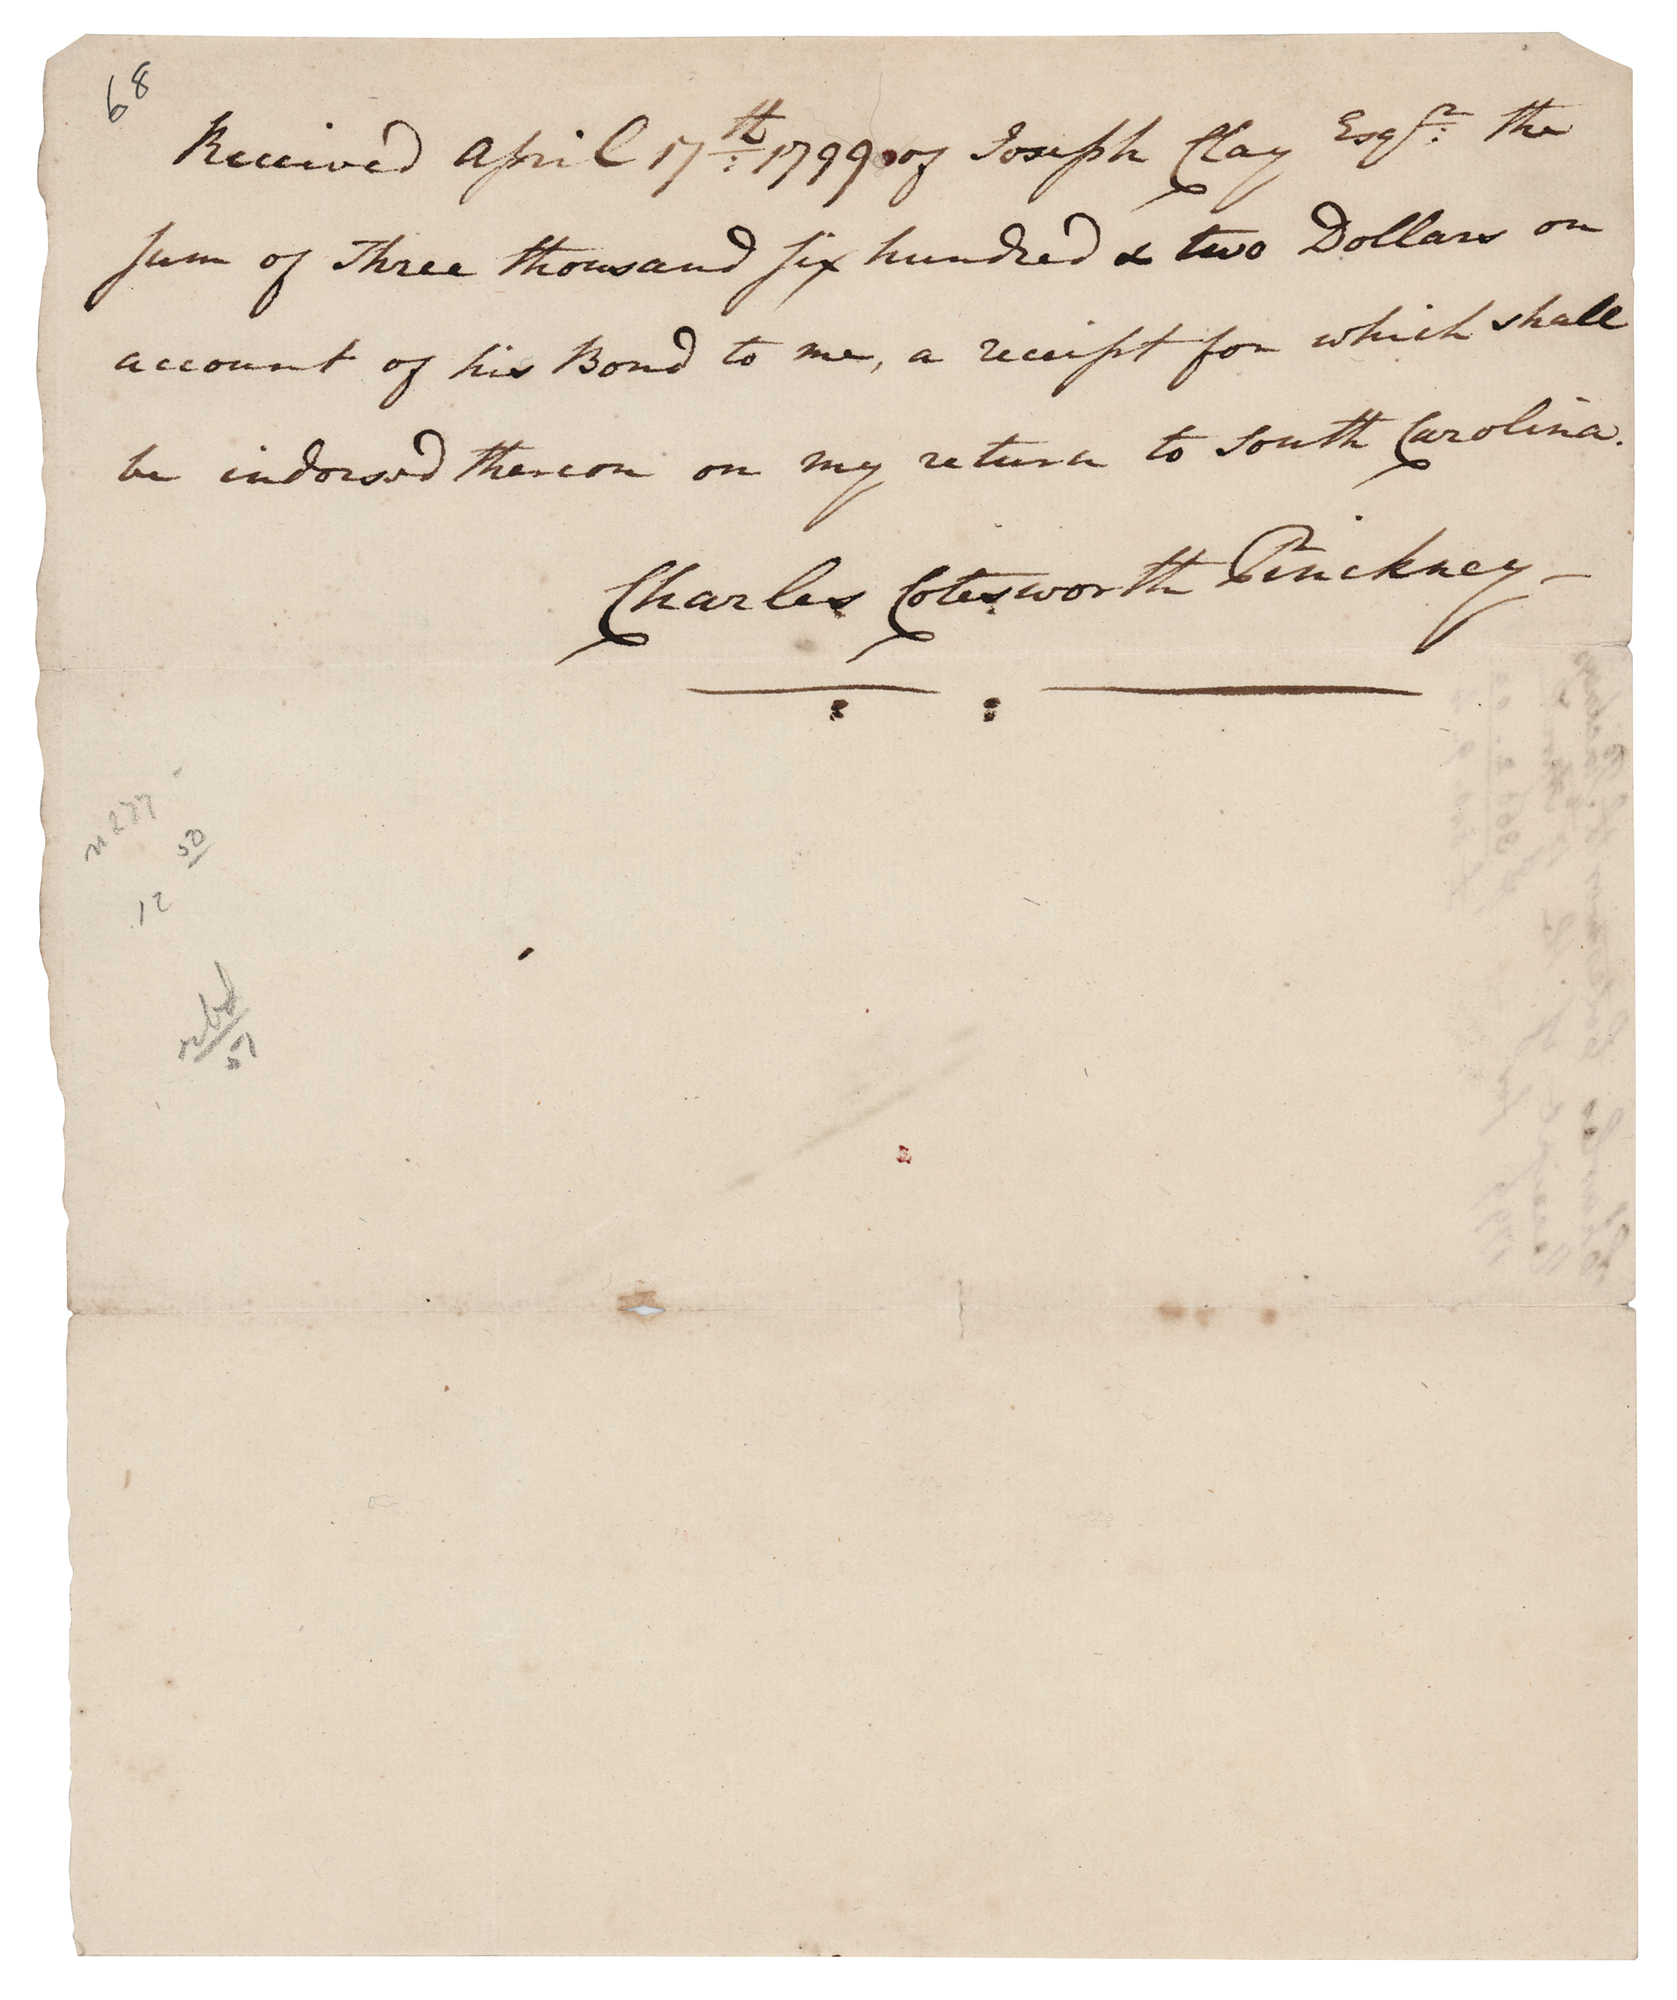 68
Received April 17th: 1799 of Joseph Clay Esqr: the
sum of Three thousand six hundred & two Dollars on
account of his Bond to me, a receipt for which shall
be indorsed thereon on my return to South Carolina.
Charles Cotesworth Pinckney—
n 277
50
12
51